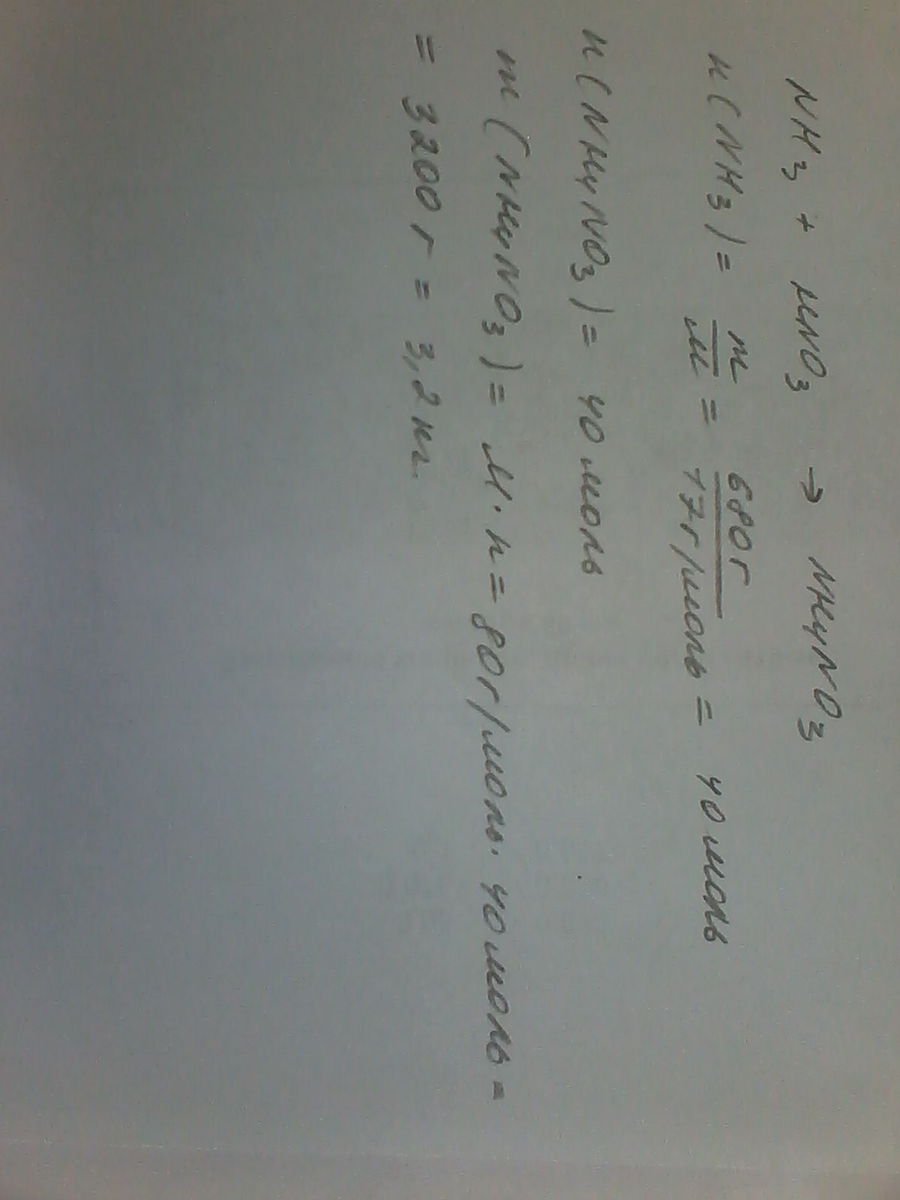 NH3 + HNO3 → NH4NO3
n(NH3) = m/M = 680г/17г/моль = 40 моль
n(NH4NO3) = 40 моль
m(NH4NO3) = M · n = 80г/моль · 40 моль =
= 3200 г = 3,2 кг.